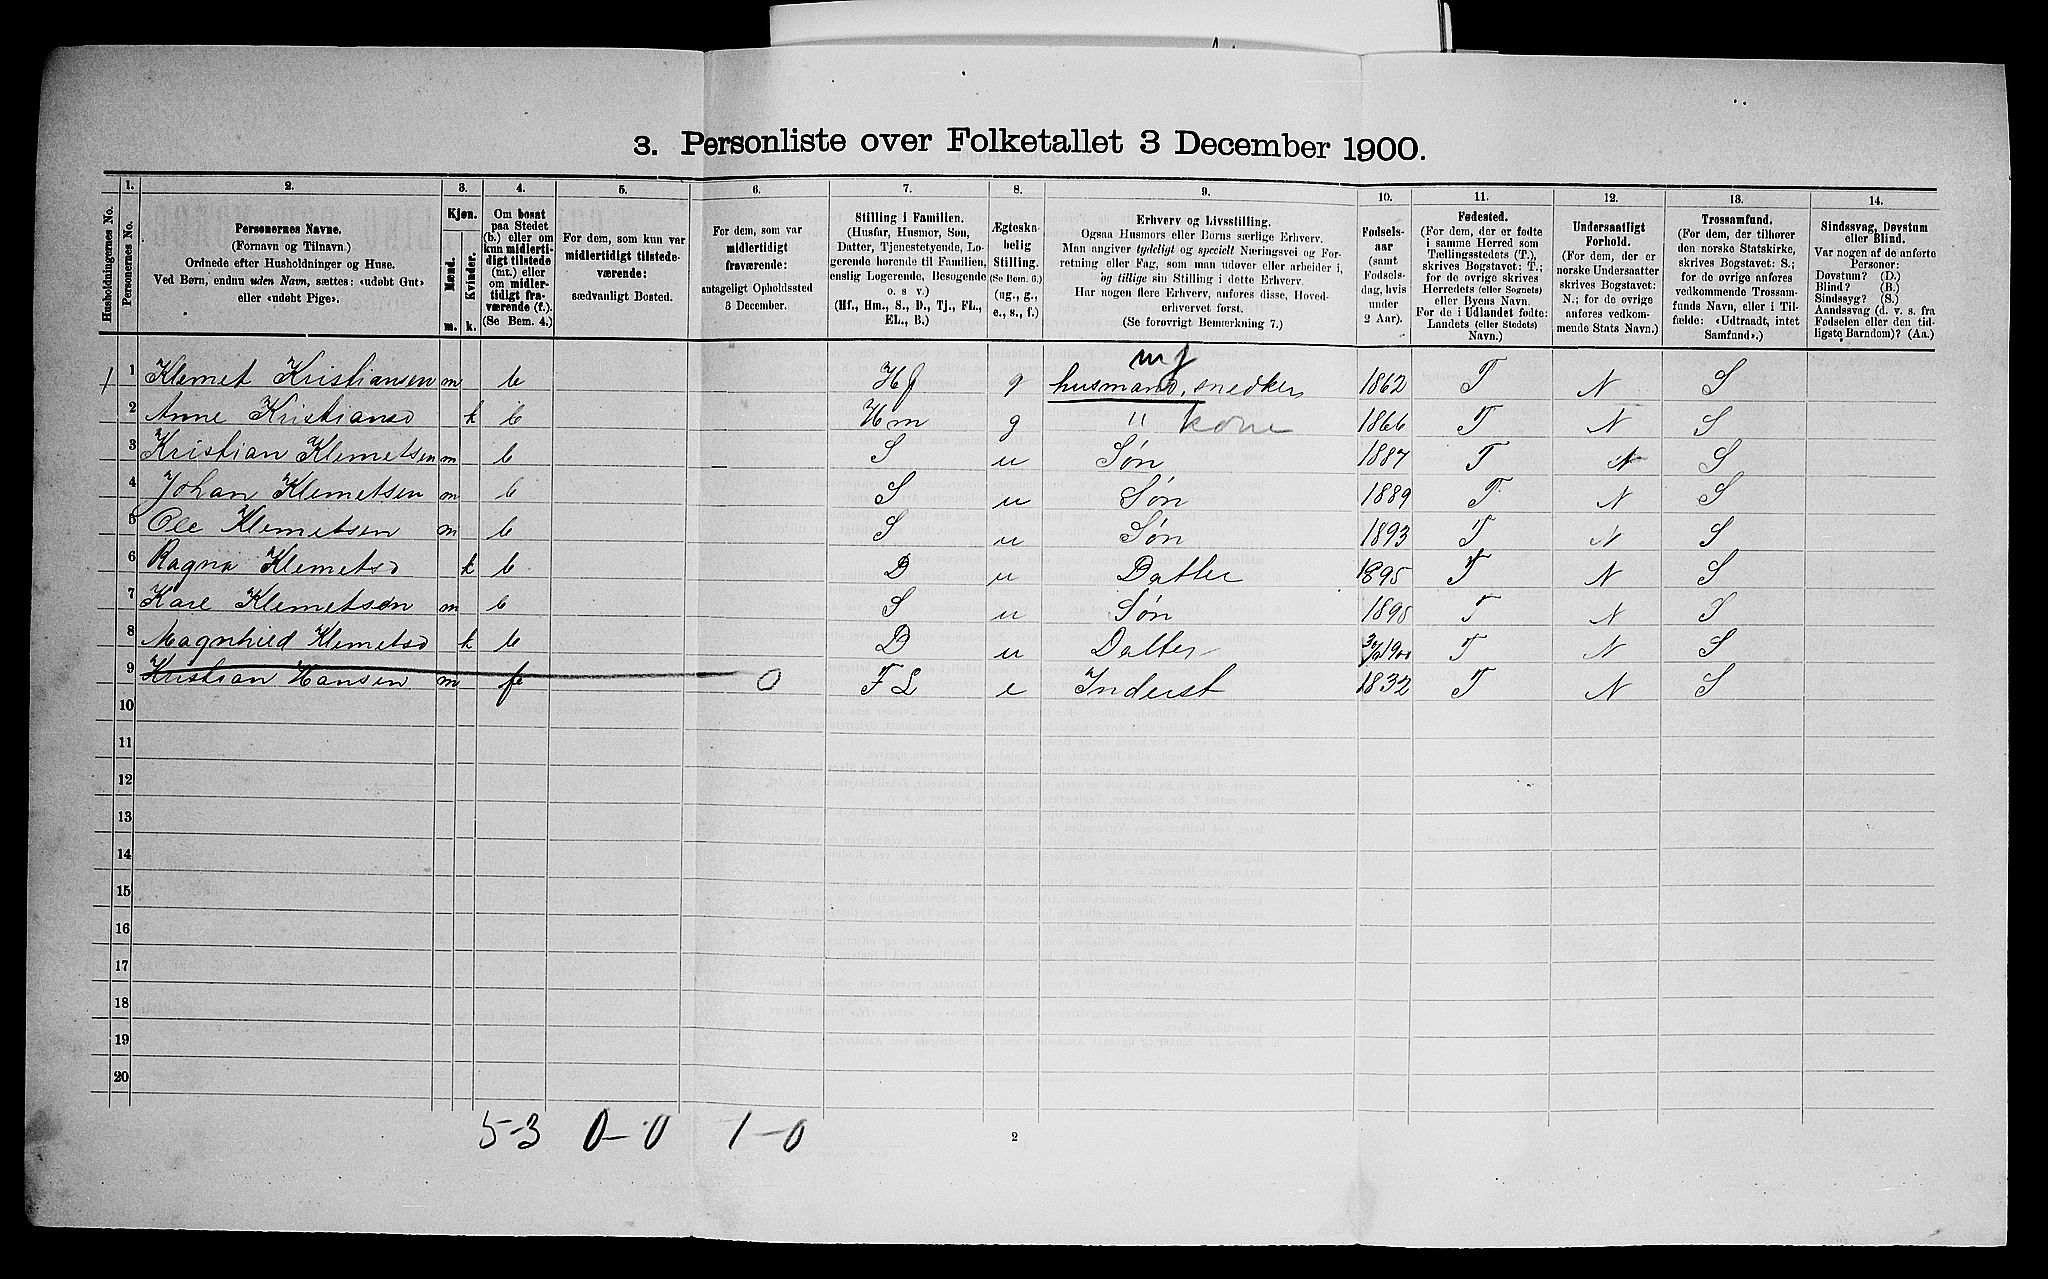 3. Personliste over Folketallet 3 December 1900.
Husholdningernes No.
1. Personernes No.
2. Personernes Navne. (Fornavn og Tilnavn.) Ordnede efter Husholdninger og Huse. Ved Børn, endnu uden Navn, sættes: «udøbt Gut» eller «udøbt Pige».
3. Kjøn. Mænd. m. Kvinder. k.
4. Om bosat paa Stedet (b.) eller om kun midlertidigt tilstede (mt.) eller om midlertidigt fraværende (f.). (Se Bem. 4.)
5. For dem, som kun var midlertidigt tilstedeværende: sædvanligt Bosted.
6. For dem, som var midlertidigt fraværende: antageligt Opholdssted 3 December.
7. Stilling i Familien. (Husfar, Husmor, Søn, Datter, Tjenestetyende, Logerende hørende til Familien, enslig Logerende, Besøgende o. s v.) (Hf., Hm., S., D., Tj., FL., EL., B.)
8. Ægteskabelig Stilling. (Se Bem. 6.) (ug., g., e., s., f.)
9. Erhverv og Livsstilling. Ogsaa Husmors eller Børns særlige Erhverv. Man angiver tydeligt og specielt Næringsvei og Forretning eller Fag, som man udøver eller arbeider i, og tillige sin Stilling i dette Erhverv. Har nogen flere Erhverv, anføres disse, Hovederhvervet først. (Se forøvrigt Bemærkning 7.)
10. Fødselsaar (samt Fødselsdag, hvis under 2 Aar).
11. Fødested. (For dem, der er fødte i samme Herred som Tællingsstedets (T.), skrives Bogstavet: T.; for de øvrige skrives Herredets (eller Sognets) eller Byens Navn. For de i Udlandet fødte: Landets (eller Stedets) Navn.)
12. Undersaatligt Forhold. (For dem, der er norske Undersaatter skrives Bogstavet: N.; for de øvrige anføres vedkommende Stats Navn.)
13. Trossamfund. (For dem, der tilhører den norske Statskirke, skrives Bogstavet: S.; for de øvrige anføres vedkommende Trossamfunds Navn, eller i Tilfælde: «Udtraadt, intet Samfund».)
14. Sindssvag, Døvstum eller Blind. Var nogen af de anførte Personer: Døvstum? (D.) Blind? (B.) Sindssyg? (S.) Aandssvag (d. v. s. fra Fødselen eller den tidligste Barndom)? (Aa.)
mf
1 1 Klemet Kristiansen m b Hf g husmand, snedker 1862 T N S
2 Anne Kristiansd k b Hm g " kone 1866 T N S
3 Kristian Klemetsen m b S u Søn 1887 T N S
4 Johan Klemetsen m b S u Søn 1889 T N S
5 Ole Klemetsen m b S u Søn 1893 T N S
6 Ragna Klemetsd k b D u Datter 1895 T N S
7 Karl Klemetsen m b S u Søn 1898 T N S
8 Magnhild Klemetsd k b D u Datter 1900 T N S
9 Kristian Hansen m f 0 FL e Inderst 1832 T N S
10
11
12
13
14
15
16
17
18
19
20
5-3 0-0 1-0
2